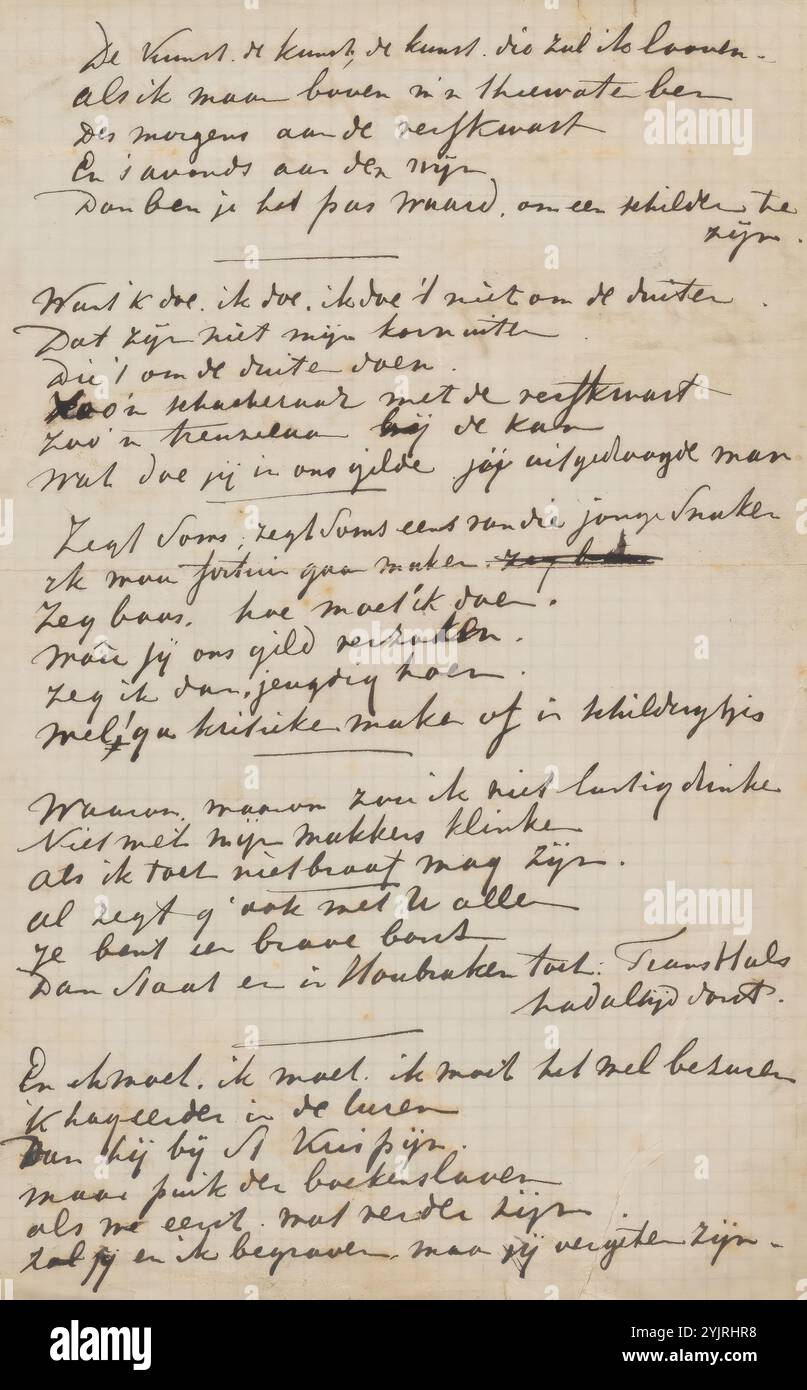 De Kunst. de kunst, de kunst. die zal ik looven -
als ik maar boven m'n theewater ben
Des morgens aan de verfkwast
En 's avonds aan den wijn
Dan ben je het pas waard, om een schilder te
zijn.
Want 'k doe. ik doe. ik doe 't niet om de duiten
Dat zijn niet mijn kornuiten
Die 't om de duiten doen.
Zoo'n schacheraar met de verfkwast
zoo'n treuzelaar bij de kan
Wat doe jij in ons gilde jij uitgedroogde man
Zegt soms, zegt soms eens van die jonge snaken
ik moet fortuin gaan maken.
Zeg baas. hoe moet ik doen.
mou jij ons gild
zeg ik dan, jeugdig hoen.
wel! ga kritieke maken of in schilderytjes
Waarom, waarom zou ik niet lustig drinke
Niet met mijn makkers klinke
als ik toch niet braaf mag zijn.
al zegt g' ook met U allen
je bent een brave borst
Dan staat er in Houbraken toch: Frans Hals
had altijd dorst.
En ik moet. ik moet. ik moet het wel bezuren
ik lag eerder in de luren
Dan hij bij St Krispijn.
maar puik der boekenslaven
als we eerst. wat verder zijn.
zal jij en ik begraven, maar jij vergeten zijn -
alamy
Image ID: 2YJRHR8
www.alamy.com